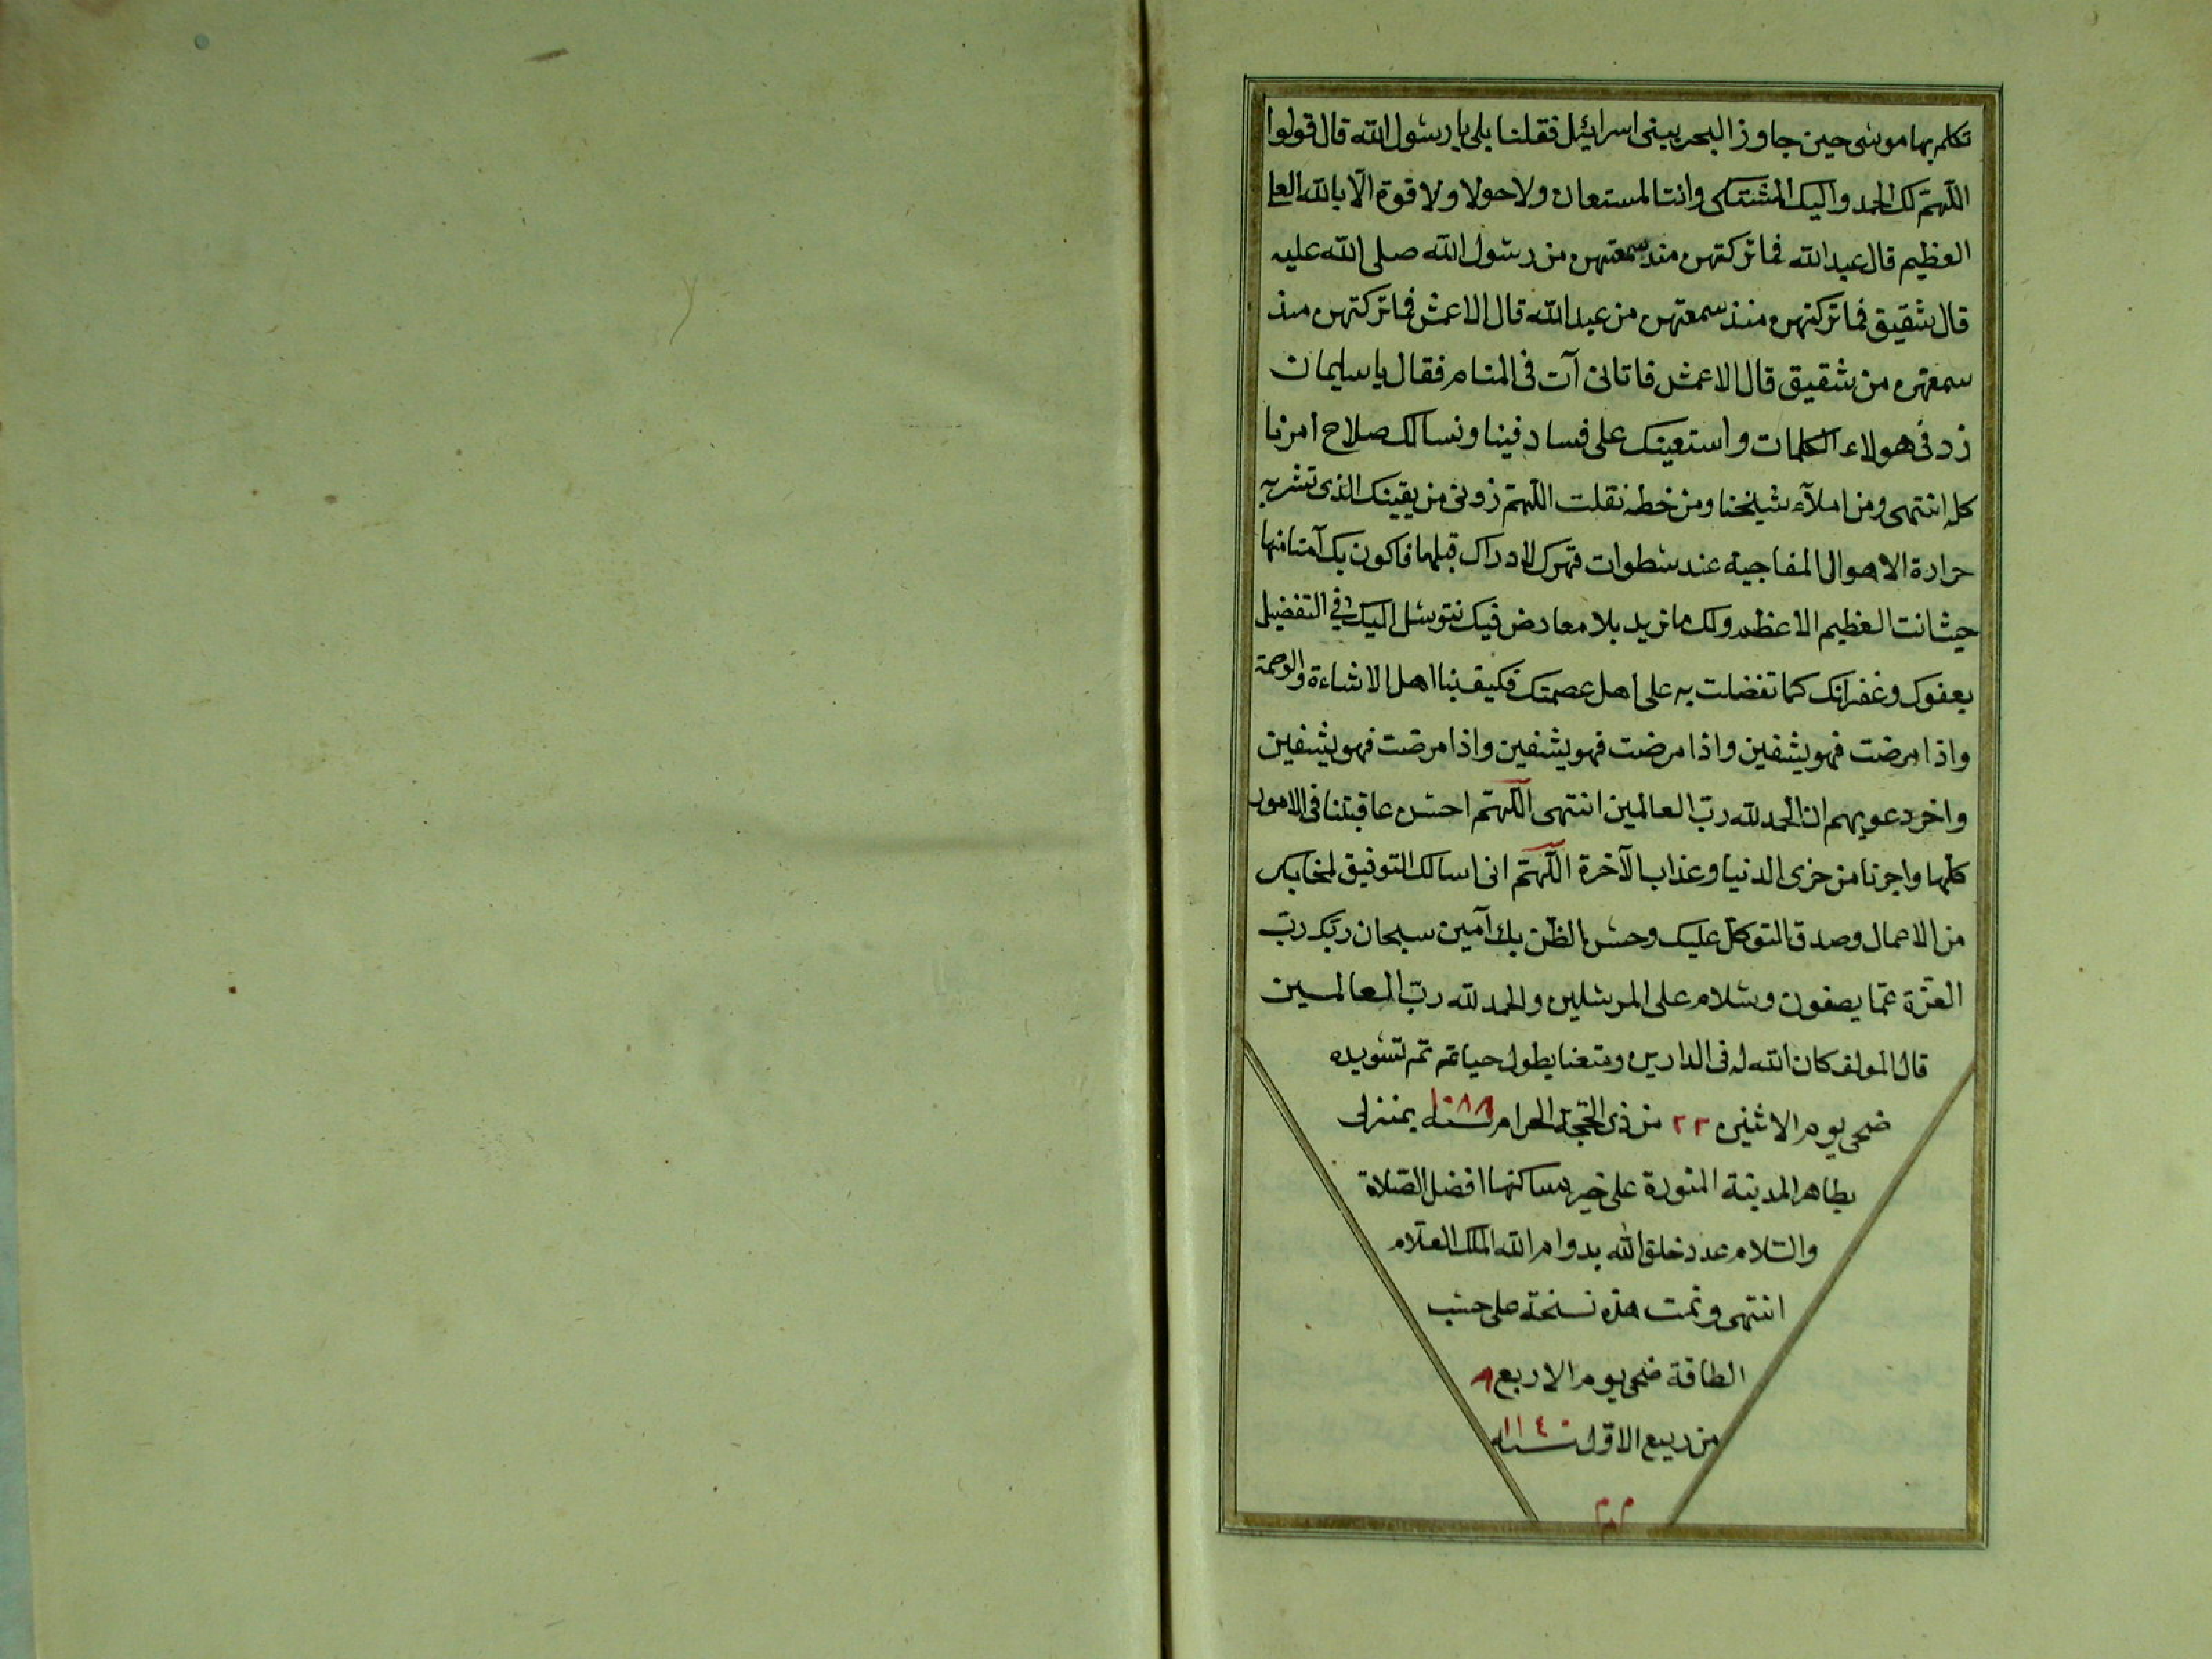 تكلم بها موسى حين جاوز البحر ببنى اسرائيل فقلنا بلى يا رسول الله قال قولوا
اللهم لك الحمد واليك المشتكى وانت المستعان ولا حولا ولا قوة الا بالله العلي
العظيم قال عبد الله فما تركتهن منذ سمعتهن من رسول الله صلى الله عليه
قال شقيق فما تركتهن منذ سمعتهن من عبد الله قال الاعمش فما تركتهن منذ
سمعتهن من شقيق قال الاعمش فاتانى آت فى المنام فقال يا سليمان
زد فى هولاء الكلمات واستعينك على فساد فينا ونسالك صلاح امرنا
كله انتهى ومن املآء شيخنا ومن خطه نقلت اللهم زونى من يقينك الذى
حرارة الاهوال المفاجية عند سطوات قهرك لادراك قبلها فاكون بك آمنا منها
حيث انت العظيم الاعظم ولك ما تريد بلا معارض فيك نتوسل اليك فى التفضيل
بعفوك وغفرانك كما تفضلت به على اهل عصمتك فكيف بنا اهل الاساءة والوصمة
واذا مرضت فهو يشفين واذا مرضت فهو يشفين واذا مرضت فهو يشفين
واخر دعويهم ان الحمد لله رب العالمين انتهى اللهم احسن عاقبتنا فى الامور
كلها واجرنا من خزى الدنيا وعذاب الآخرة اللهم انى اسالك التوفيق لمحابك
من الاعمال وصدق التوكل عليك وحسن الظن بك آمين سبحان ربك رب
العزة عما يصفون وسلام على المرسلين والحمد لله رب العالمين
قال المولف كان الله له فى الدارين ومتعنا بطول حياته تم تسويده
ضحى يوم الاثنين ٢٢ من ذى الحجة الحرام سنة ١٠٨٨ بمنزلى
بظاهر المدينة المنورة على خير ساكنها افضل الصلاة
والسلام عدد خلق الله بدوام الله الملك العلام
انتهى وتمت هذه نسخة على حسب
الطاقة ضحى يوم الاربع ٨
من ربيع الاول سنة ١١٤٠
م م م